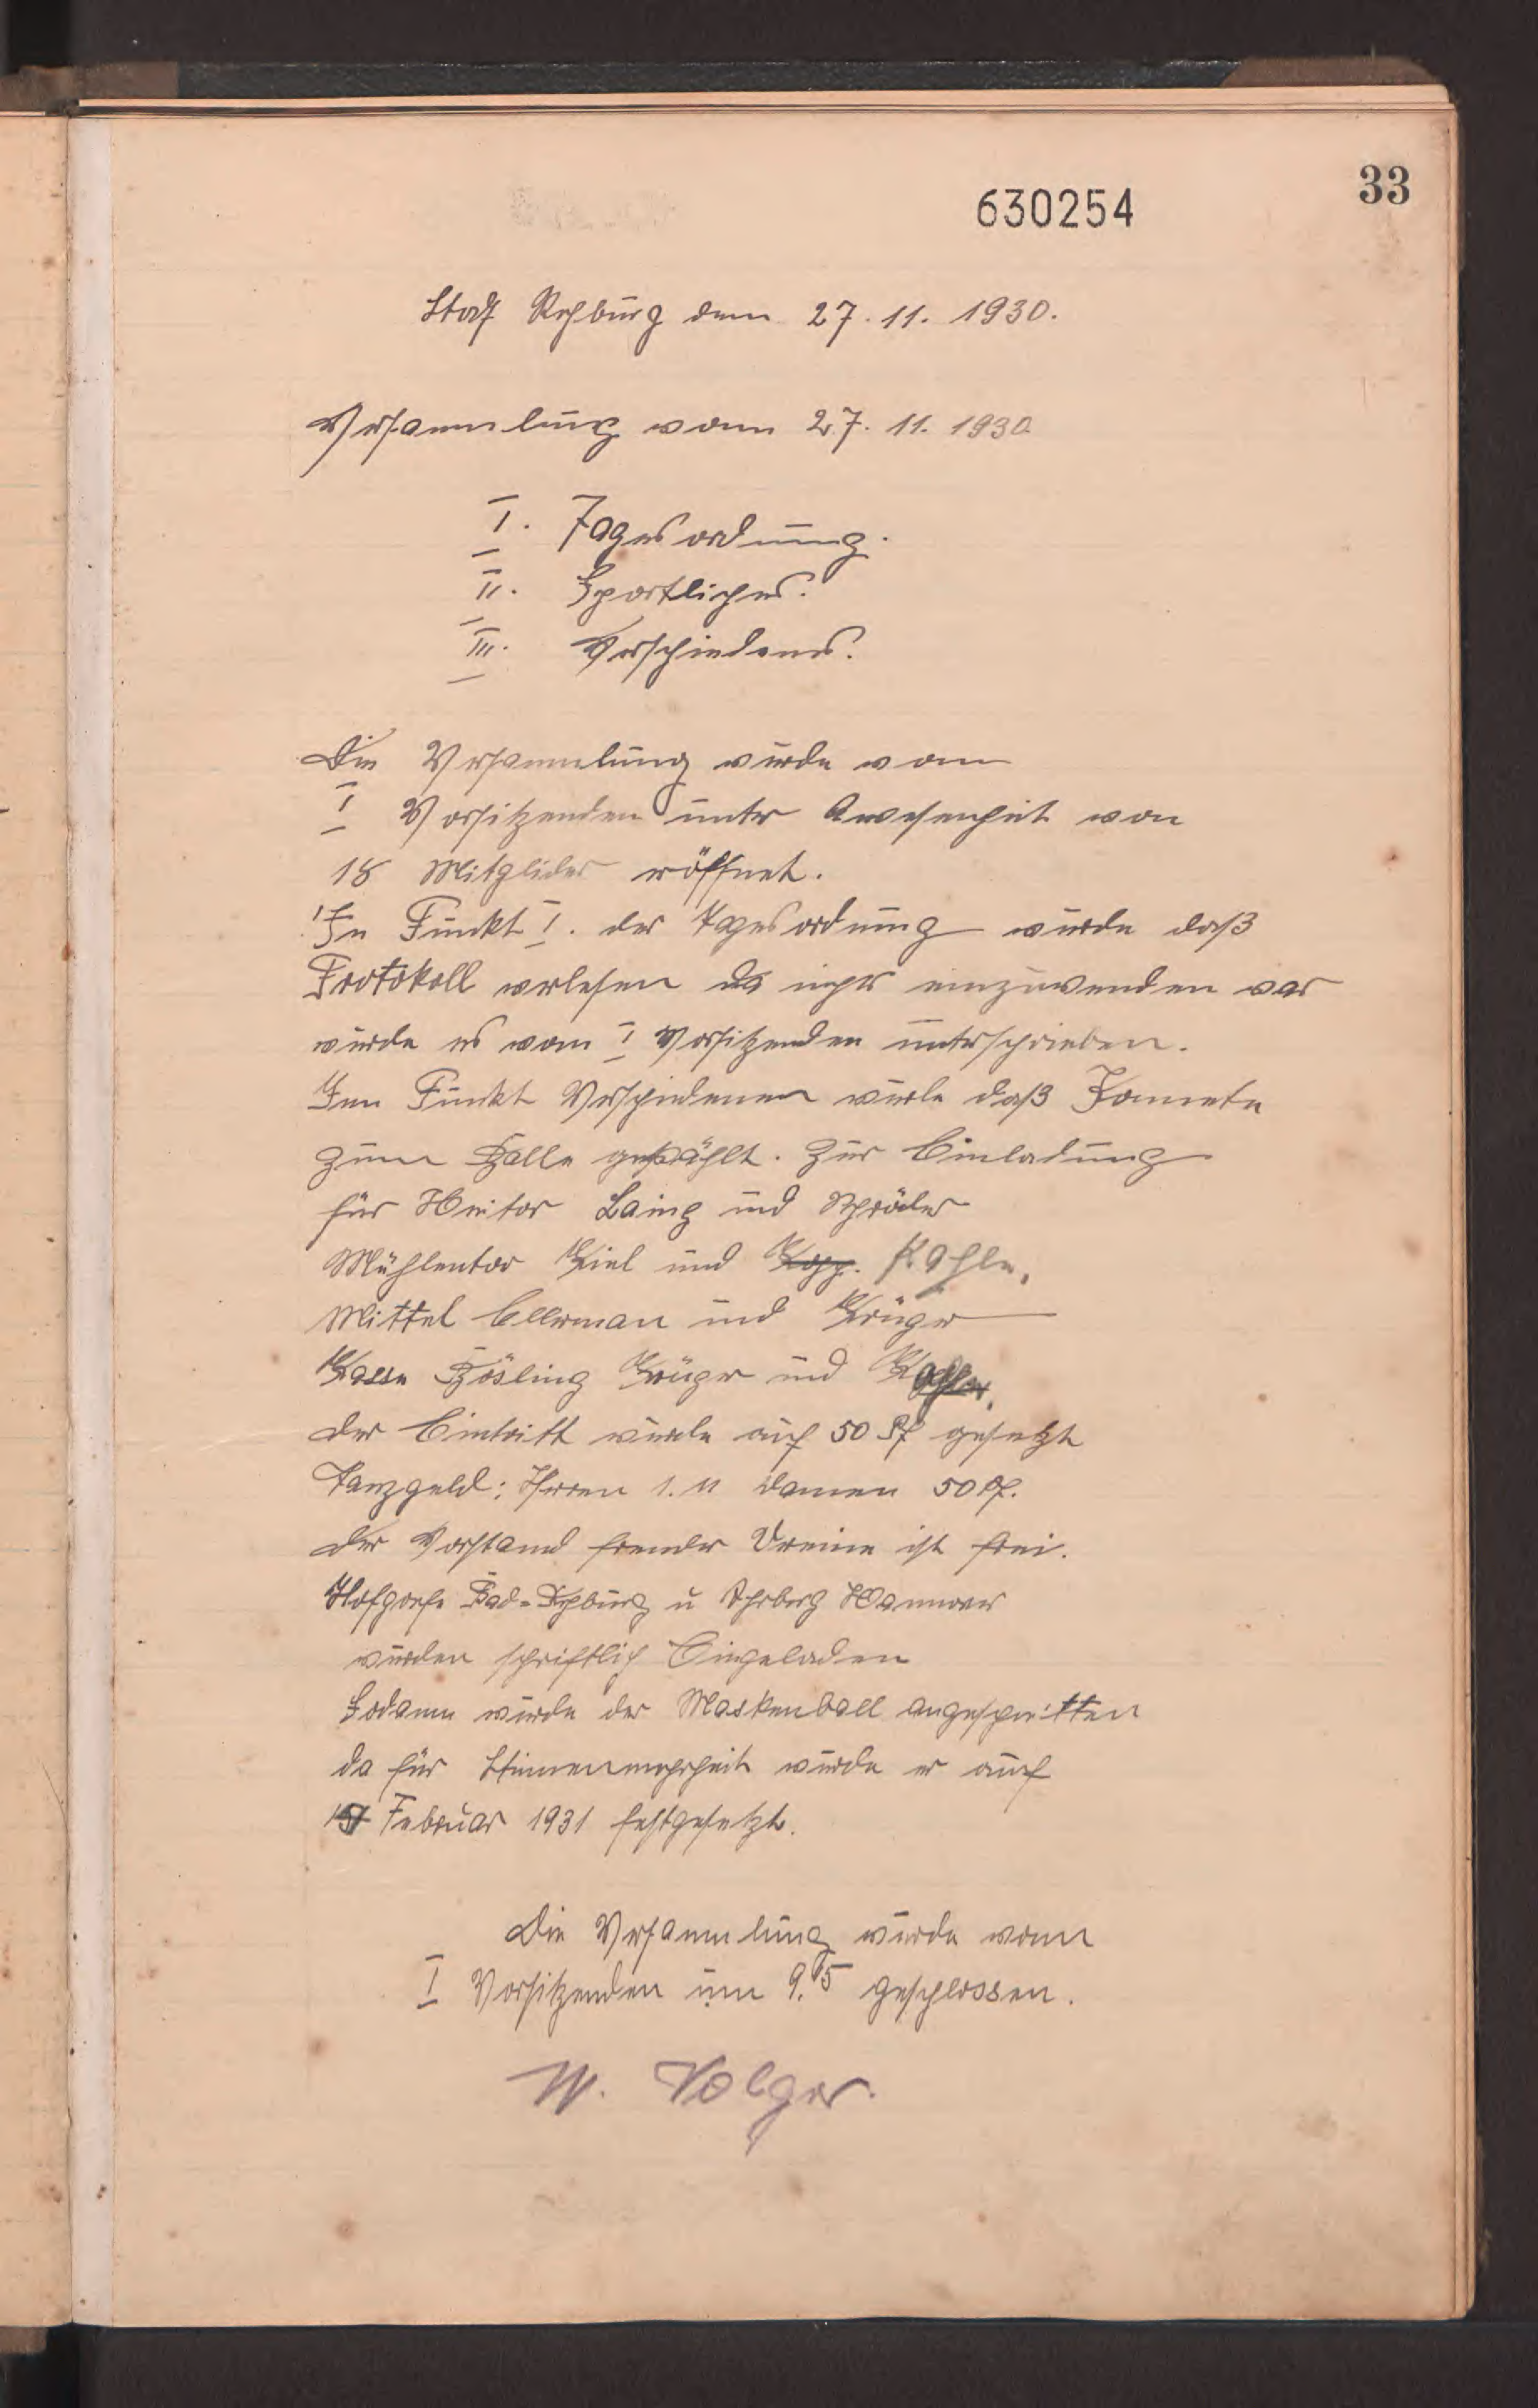 33
630254
Stadt Rehburg den 27. 11. 1930.
Versammlung vom 27. 11. 1930
I. Tagesordnung.
II. Sportliches.
III. Verschiedenes.
Die Versammlung wurde vom
I Vorsitzenden unter Anwesenheit von
18 Mitglieder eröffnet.
In Punkt I. der Tagesordnung wurde daß
Protokoll verlesen da nichts einzuwenden war
wurde es vom I Vorsitzenden unterschrieben.
Im Punkt Verschiedenen wurde daß Komete
zum Balle gewählt. Zur Einladung
für Heitor Laing und Schröder
Mühlentor Kiel und Kopp. Kahle,
Mittel Ellerman und Krüger
Kasse Bösling Krüger und
der Eintritt wurde auf 50 Pf gesetzt
Tanzgeld: Herren 1. M Damen 50 Pf.
der Vorstand fremder Vereine ist frei.
Bad-Rehburg u Hannover
wurden schriftlich Eingeladen
Sodann wurde der Maskenball angeschnitten
da für Stimmenmehrheit wurde er auf
Februar 1931 festgesetzt.
Die Versammlung wurde vom
I Vorsitzenden um 9.15 geschlossen.
W. Volger.